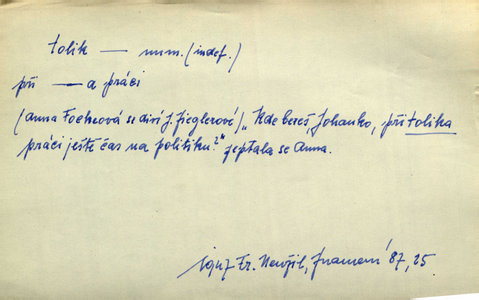 tolik — num. (indef.)
při —a práci
(Anna Focheová se diví J. Zieglerové) „Kde bereš, Johanko, při tolika
práci ještě čas na politiku?" zeptala se Anna.
Fr. Neužil, Znamení '87, 25.